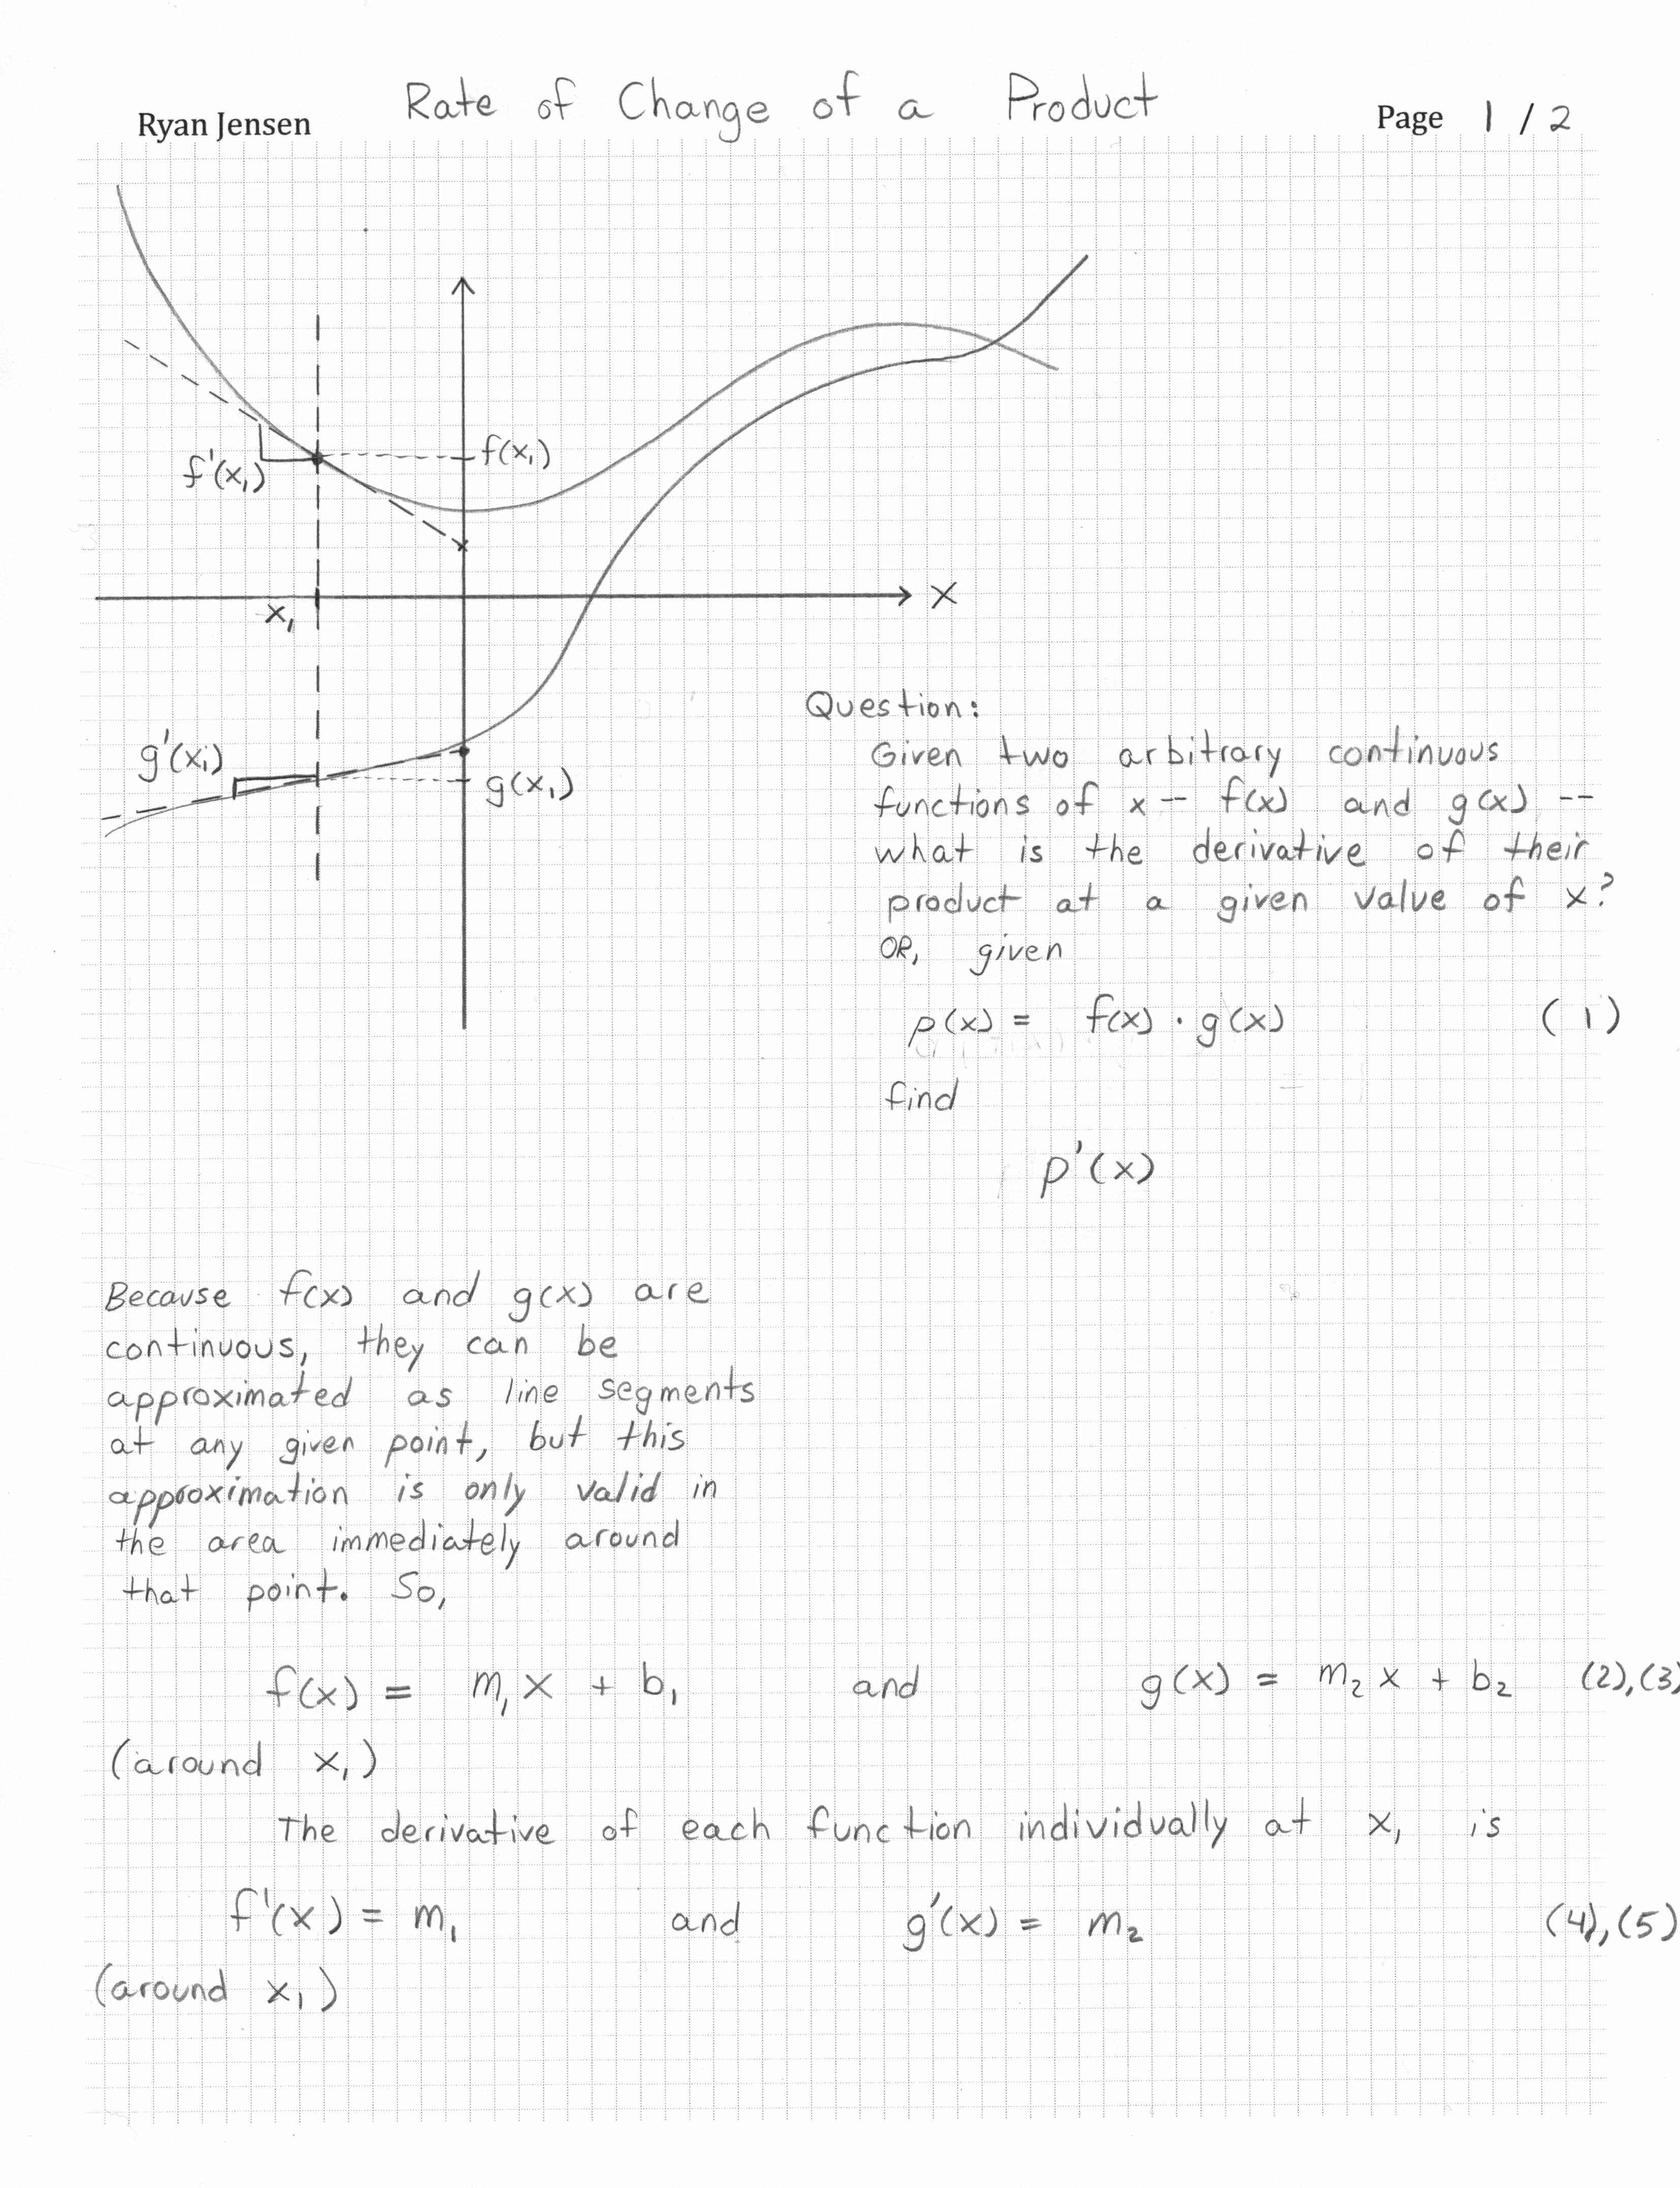 Rate of Change of a Product
Ryan Jensen
Page 1 / 2
f(x₁)
f'(x₁)
x
x₁
g'(x₁)
g(x₁)
Question:
Given two arbitrary continuous
functions of x - f(x) and g(x) --
what is the derivative of their
product at a given value of x?
OR, given
p(x) = f(x) · g(x) (1)
find
p'(x)
Because f(x) and g(x) are
continuous, they can be
approximated as line segments
at any given point, but this
approximation is only valid in
the area immediately around
that point. So,
f(x) = m₁x + b₁ and g(x) = m₂x + b₂ (2),(3)
(around x₁)
The derivative of each function individually at x₁ is
f'(x) = m₁ and g'(x) = m₂ (4),(5)
(around x₁)